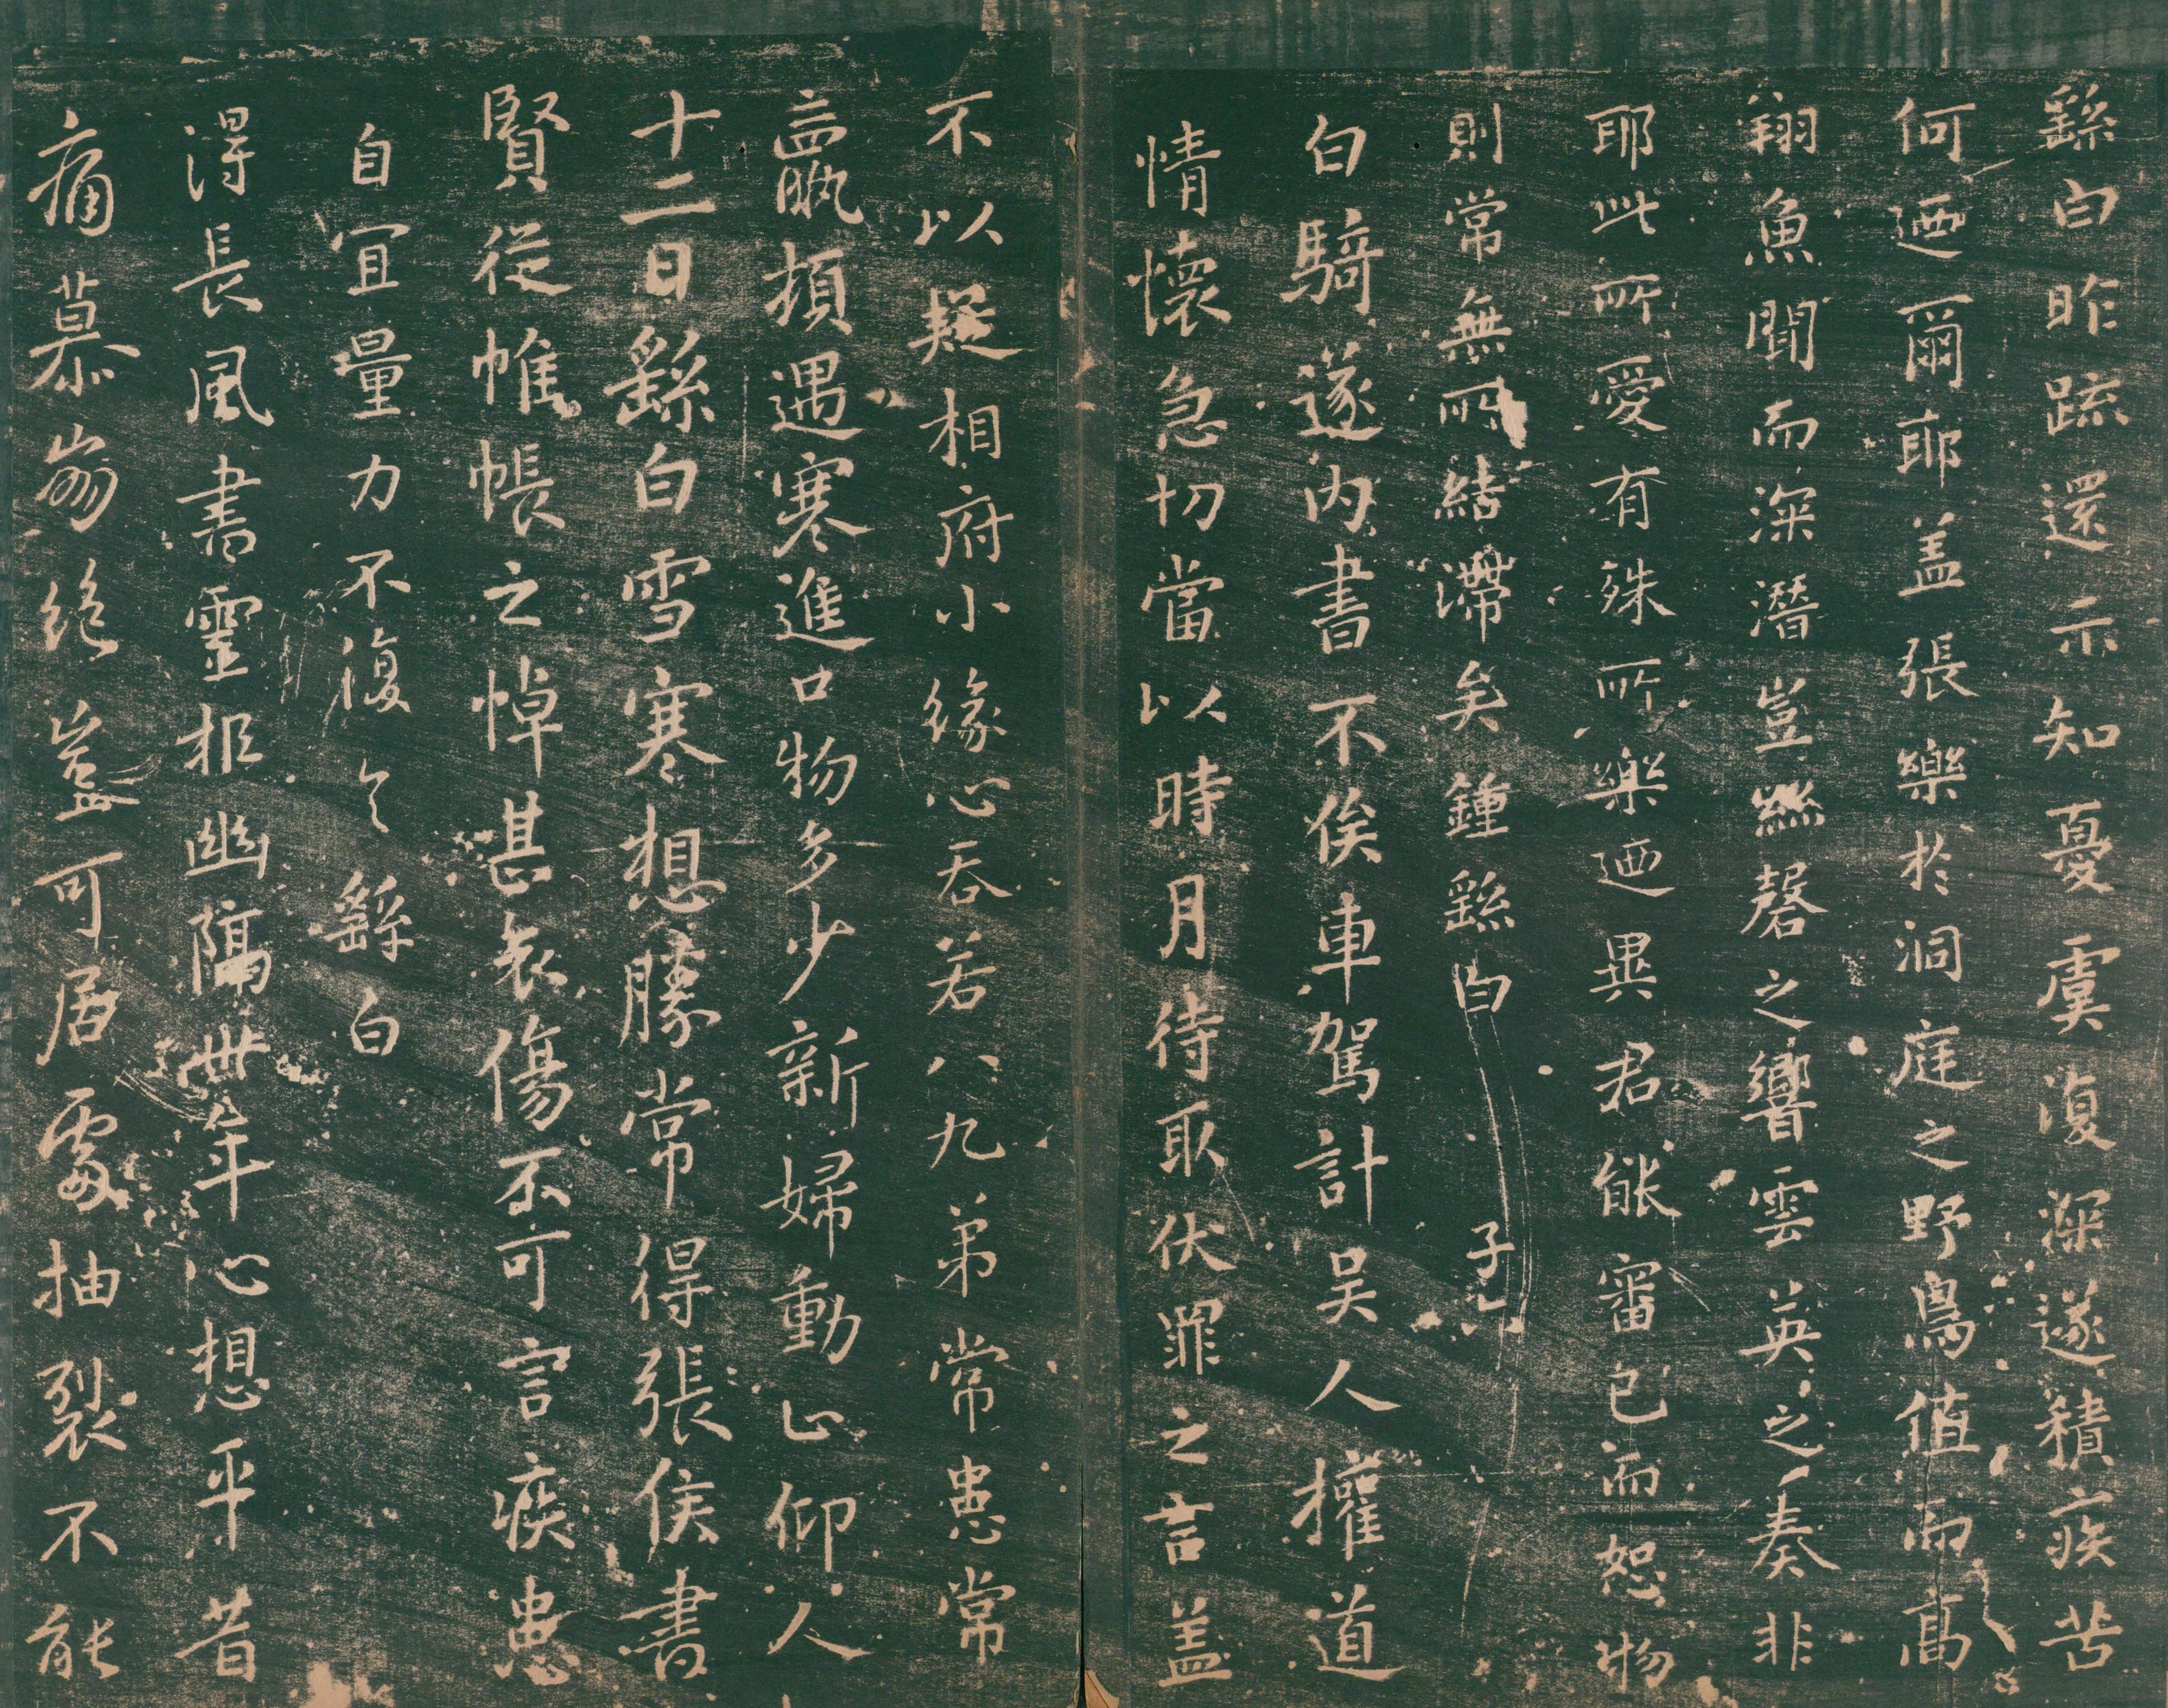 繇白昨疏還示知憂虞復深遂積疾苦
何迺爾耶盖張樂於洞庭之野鳥值而高
翔魚聞而深潛豈絲磬之響雲英之奏非
耶此所愛有殊所樂迺異君能審己而恕物
則常無所結滯矣鍾繇白
白騎遂內書不俟車駕計吴人權道
情懷急切當以時月待取伏罪之言盖
不以疑相府小緣心吞若八九弟常患常
羸頓遇寒進口物多少新婦動止仰人
十二日繇白雪寒想勝常得張侯書
賢從帷帳之悼甚哀傷不可言疾患
自宜量力不復繇白
得長風書靈柩幽隔卅年心想平昔
痛慕崩絕豈可居處抽裂不能